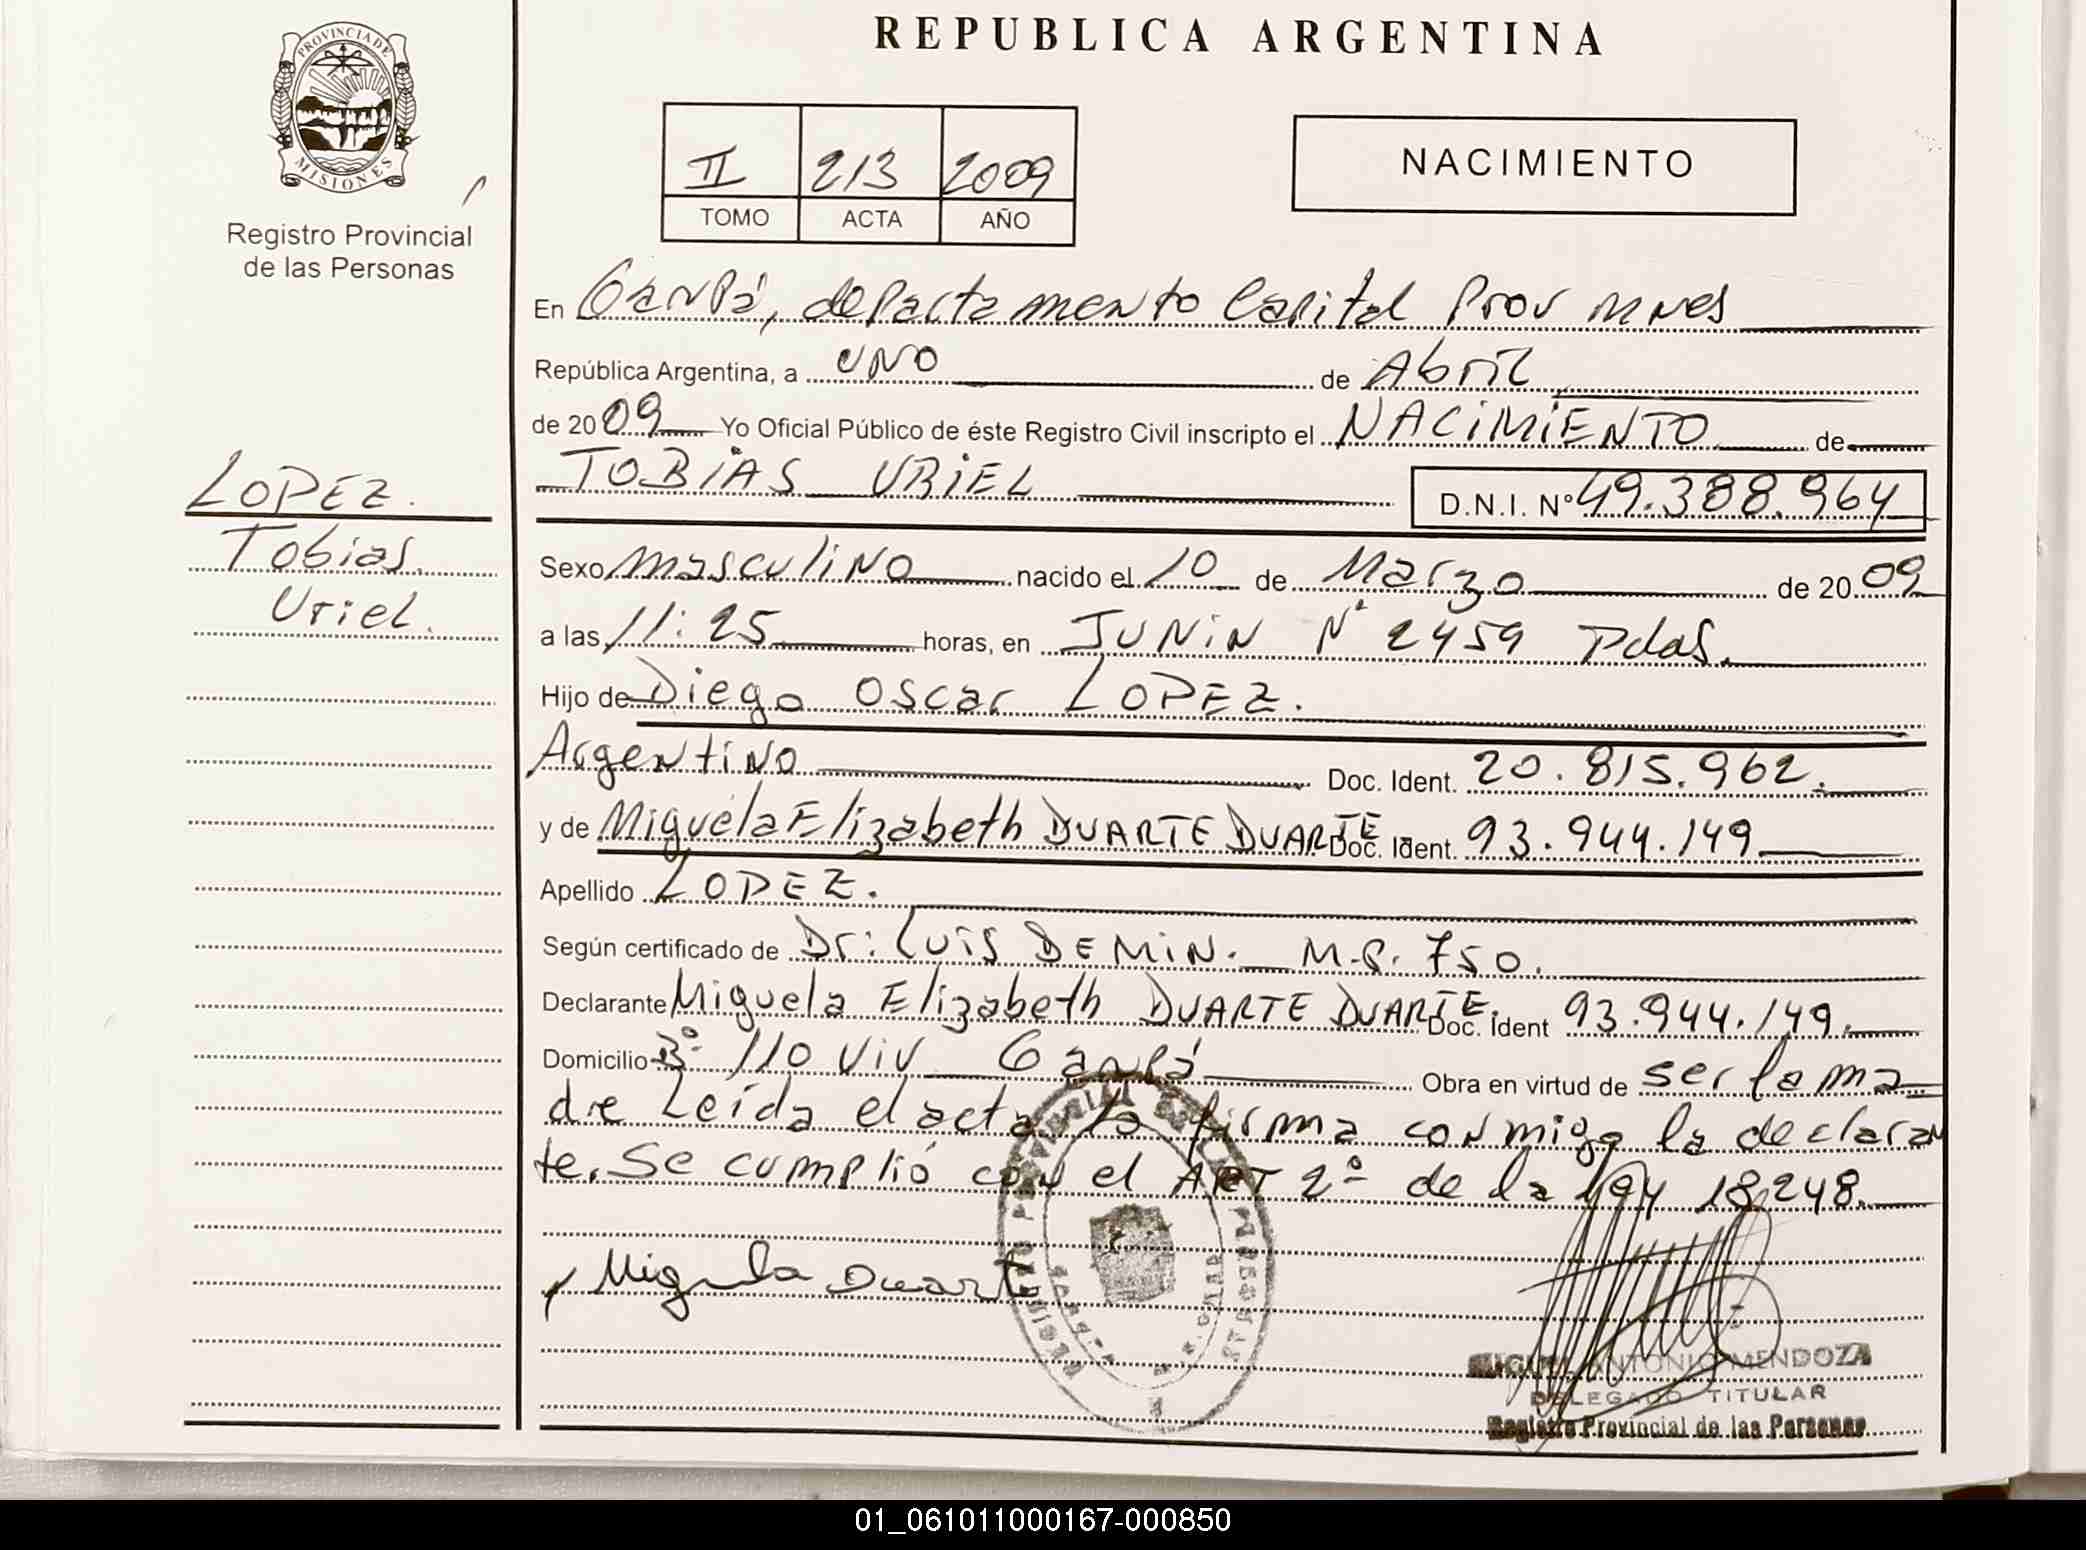 REPUBLICA ARGENTINA
PROVINCIA DE
MISIONES
Registro Provincial
de las Personas
II 213 2009
TOMO ACTA AÑO
NACIMIENTO
En Garupá, departamento Capital Prov mnes
República Argentina, a uno de Abril
de 2009 Yo Oficial Público de éste Registro Civil inscripto el NACIMIENTO de
TOBIAS URIEL D.N.I. Nº 49.388.964
LOPEZ.
Tobias.
Uriel.
Sexo masculino nacido el 10 de Marzo de 2009
a las 11:25 horas, en JUNIN Nº 2459 Pdas.
Hijo de Diego Oscar LOPEZ.
Argentino Doc. Ident. 20.815.962.
y de Miguela Elizabeth DUARTE DUARTE Doc. Ident. 93.944.149
Apellido LOPEZ.
Según certificado de Dr: Luis DEMIN. M.P. 750.
Declarante Miguela Elizabeth DUARTE DUARTE. Doc. Ident 93.944.149.
Domicilio Bº 110 viv Garupá Obra en virtud de ser la ma
dre Leída el acta la firma conmigo la declaran
te. Se cumplió con el ART 2º de la Ley 18.248.
Miguela Duarte
MIGUEL ANTONIO MENDOZA
DELEGADO TITULAR
Registro Provincial de las Personas
01_061011000167-000850